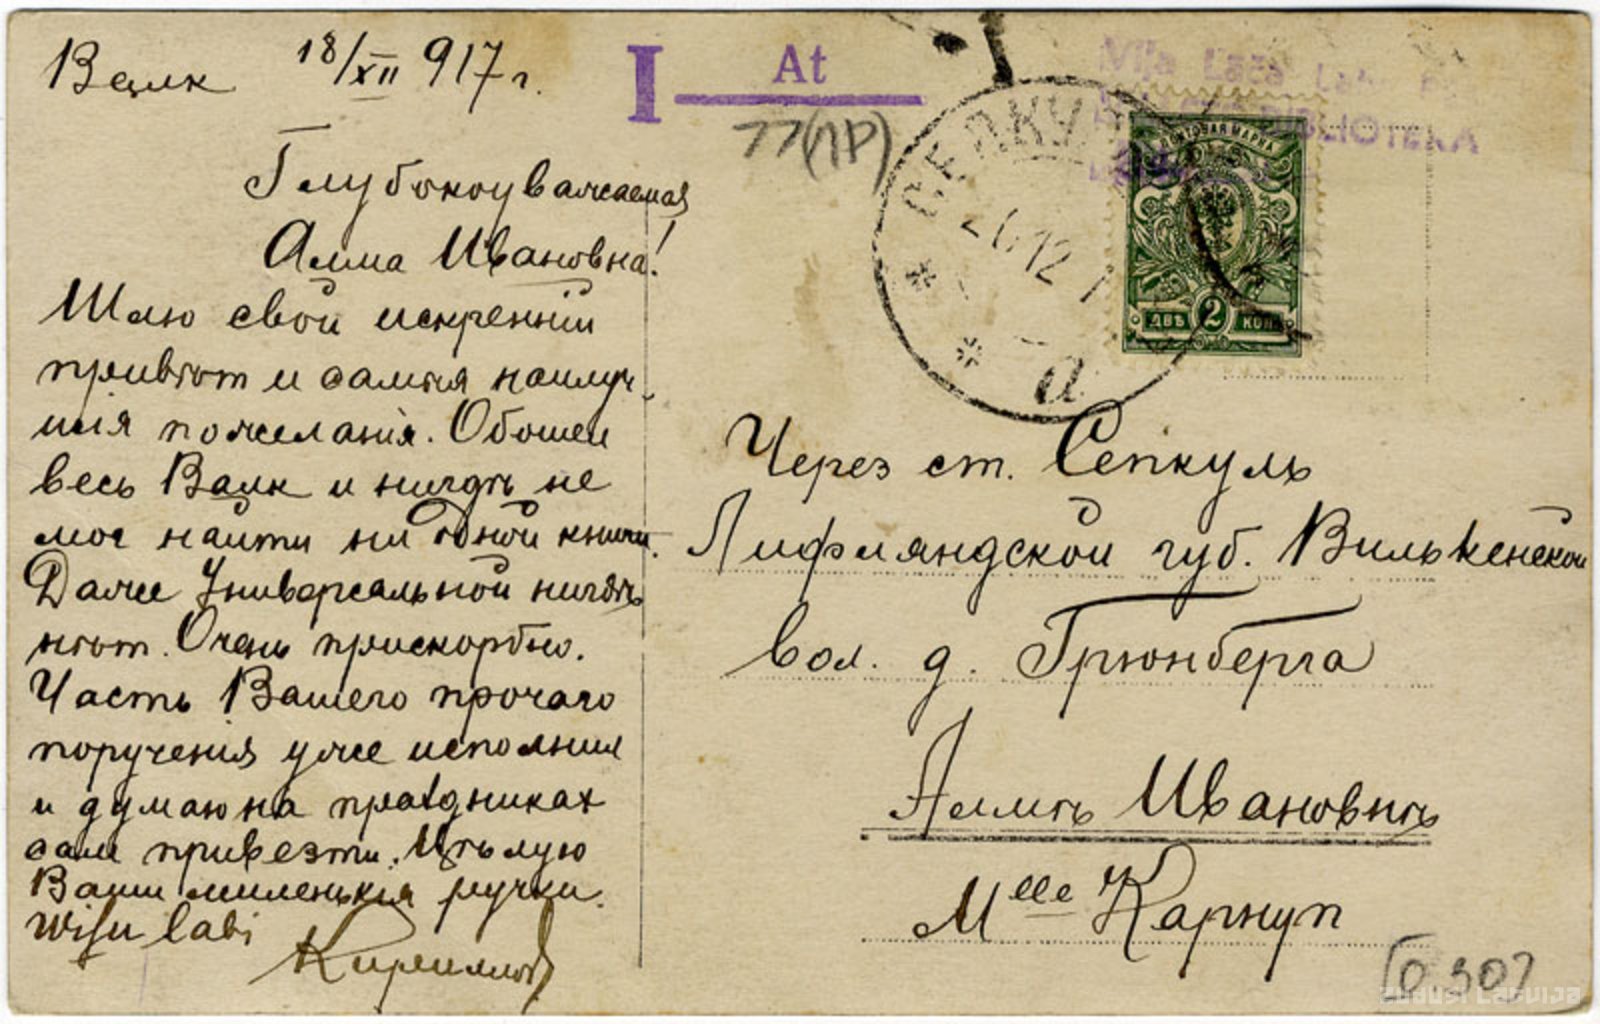 Валк 18/XII 917 г.
Глубокоуважаемая
Алма Ивановна!
Шлю свой искренній
привѣт и самыя наилуч-
шія пожеланія. Обошел
весь Валк и нигдѣ не
мог найти ни одной книги.
Даже Универсальной нигдѣ
нѣт. Очень прискорбно.
Часть Вашего прочаго
поручения уже исполнил
и думаю на праздниках
сам привезти. Цѣлую
Ваши миленькія ручки.
Wisu labi
Кириллов
I At
77(ЛР)
СЕПКУ
2 12 1
а
Mija Lāča
BIBLIOTEKA
ПОЧТОВАЯ МАРКА
ДВѢ 2 КОП
Через ст. Сепкуль
Лифляндской губ. Вилькенской
вол. д. Грюнберга
Алмѣ Ивановнѣ
Mlle Карнуп
Zudusī Latvija